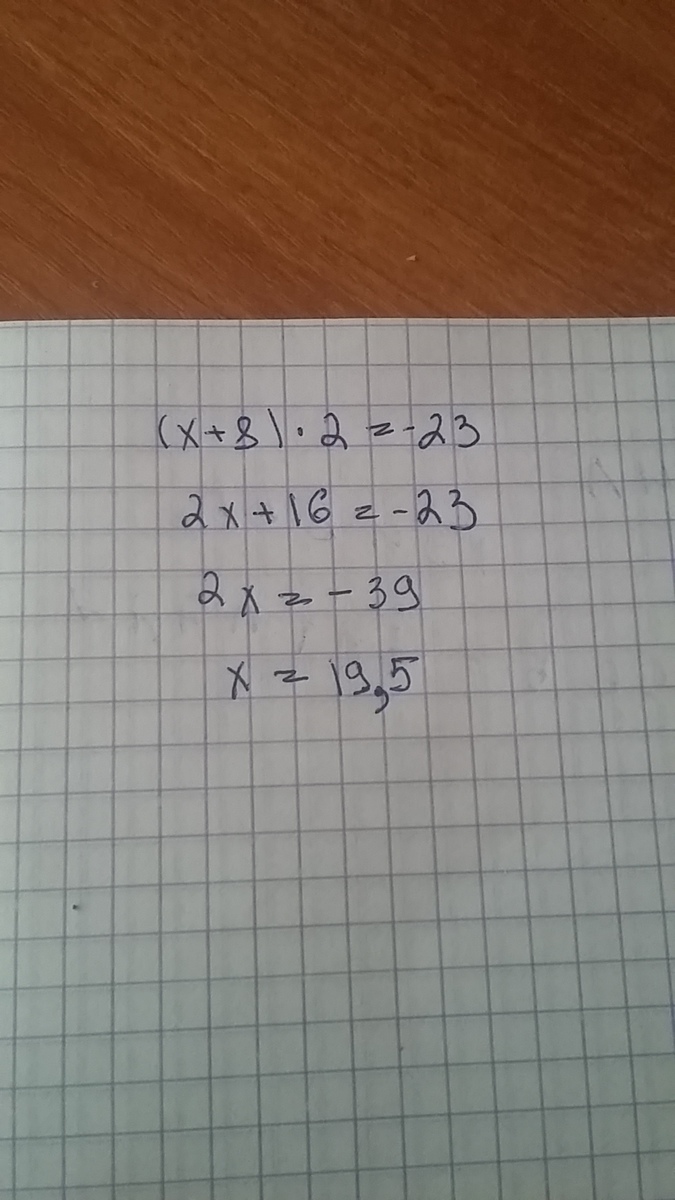 (x+8)·2=-23
2x+16=-23
2x=-39
x=19,5